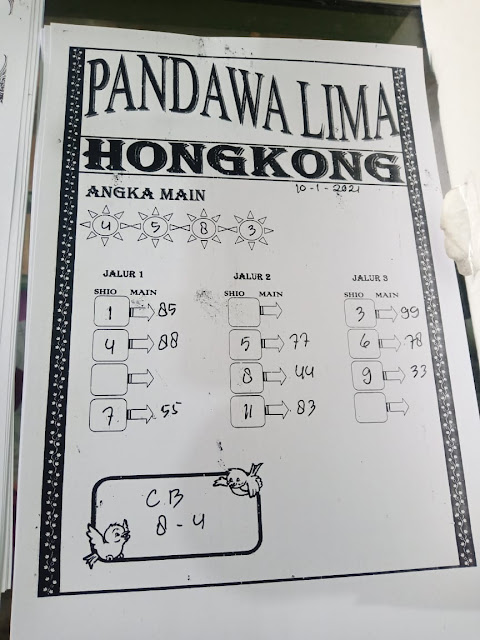 PANDAWA LIMA
HONGKONG
10-1-2021
ANGKA MAIN
4 5 8 3
JALUR 1 JALUR 2 JALUR 3
SHIO MAIN SHIO MAIN SHIO MAIN
1 85 3 99
4 88 5 77 6 78
8 44 9 33
7 55 11 83
CB
8-4